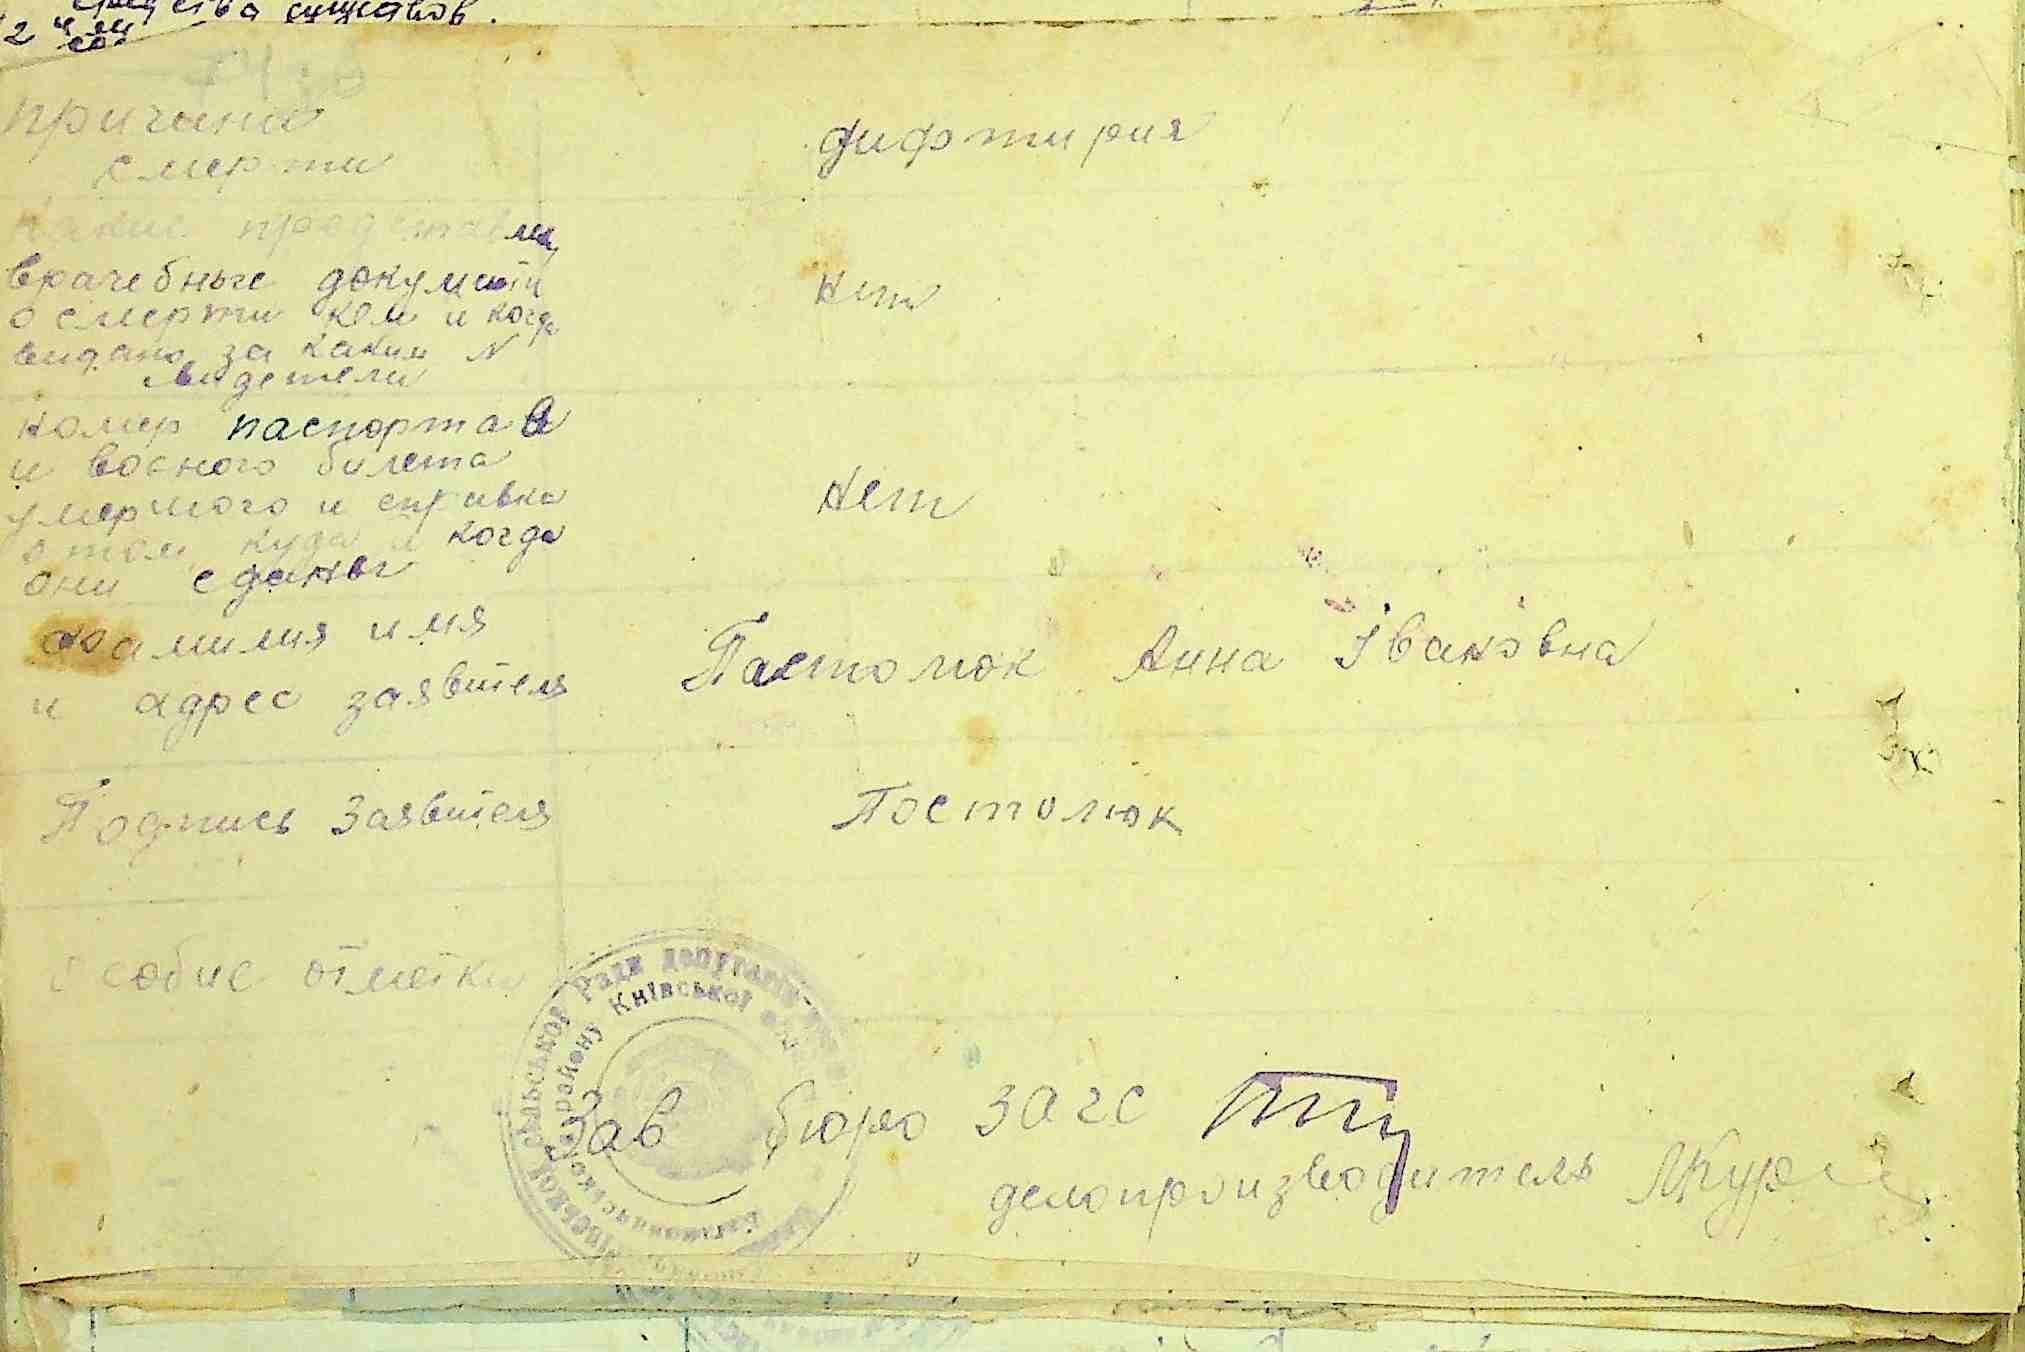 средства существов.
2
причина
смерти
дифтирия
какие представлен,
врачебные документи
о смерти кем и когда
видано за каким N
свидетели
нет
номер паспорта
и военого билета
умершого и справка
о том куда и когда
они сданы
нет
фамилия имя
и адрес заявителя
Пастолюк Анна Івановна
Подпись Заявителя
Постолюк
особие отметки
сільської Ради депутатів
району Київської
Зав бюро загс
делопроизводитель